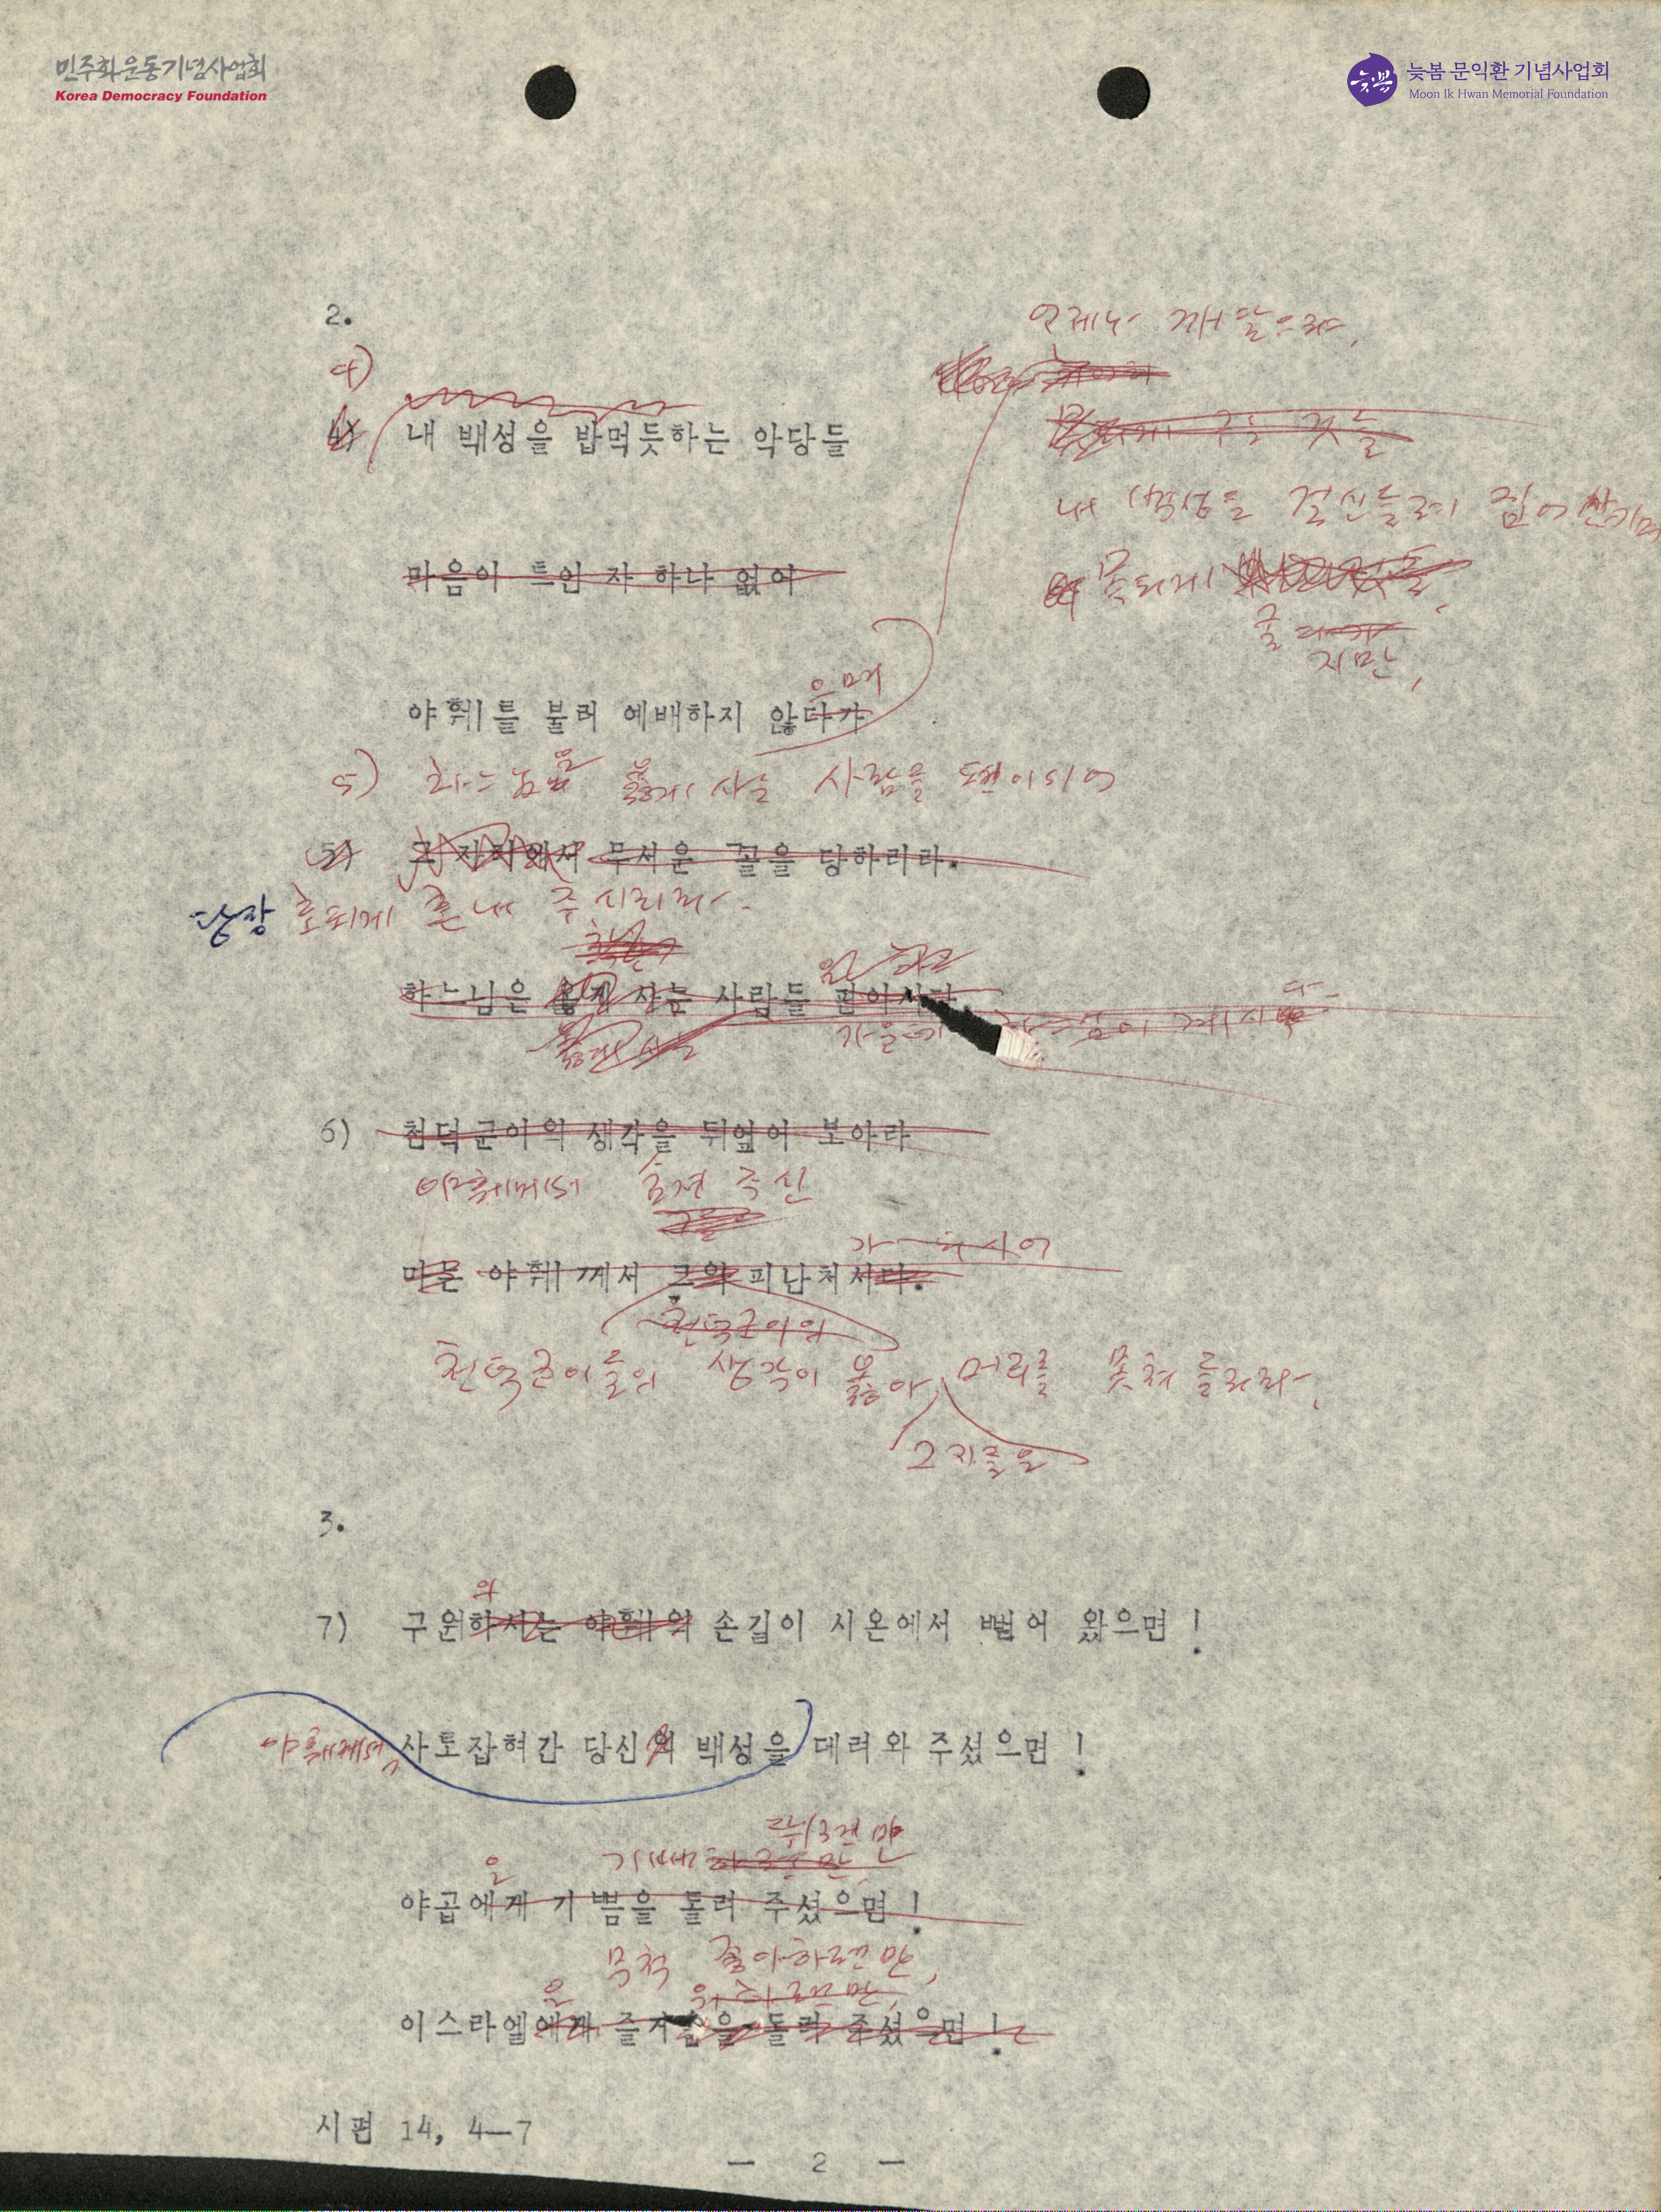 민주화운동기념사업회
Korea Democracy Foundation
늦봄
늦봄 문익환 기념사업회
Moon Ik Hwan Memorial Foundation
2.
언제나 깨달으랴,
4)
4) 내 백성을 밥먹듯하는 악당들
못되게 구는 것들
내 백성을 걸신들려 집어
못되게
굴
지만,
마음이 트인 자 하나 없어
으며
야훼를 불러 예배하지 않다가
5) 하느님은 옳게 사는 사람들 편이되어
5) 그 자리에서 무서운 꼴을 당하리라.
당장 호되게 혼내 주시리라.
하느님은 옳게 사는 사람들 편이시다.
6) 천덕군이의 생각을 뒤엎어 보아라
야훼께서 숨겨 주신
가
마는 야훼께서 그의 피난처시다.
천덕군이의
천덕군이들의 생각이 옳아 머리를 못쳐들리라,
그 자들은
3.
의
7) 구원하시는 야훼의 손길이 시온에서 뻗어 왔으면!
야훼께서 사로잡혀간 당신의 백성을 데려와 주셨으면!
뛰련만
은 기뻐
야곱에게 기쁨을 돌려 주셨으면!
무척 좋아하련만,
은
이스라엘에게 즐거움을 돌려 주셨으면!
시편 14, 4—7
— 2 —